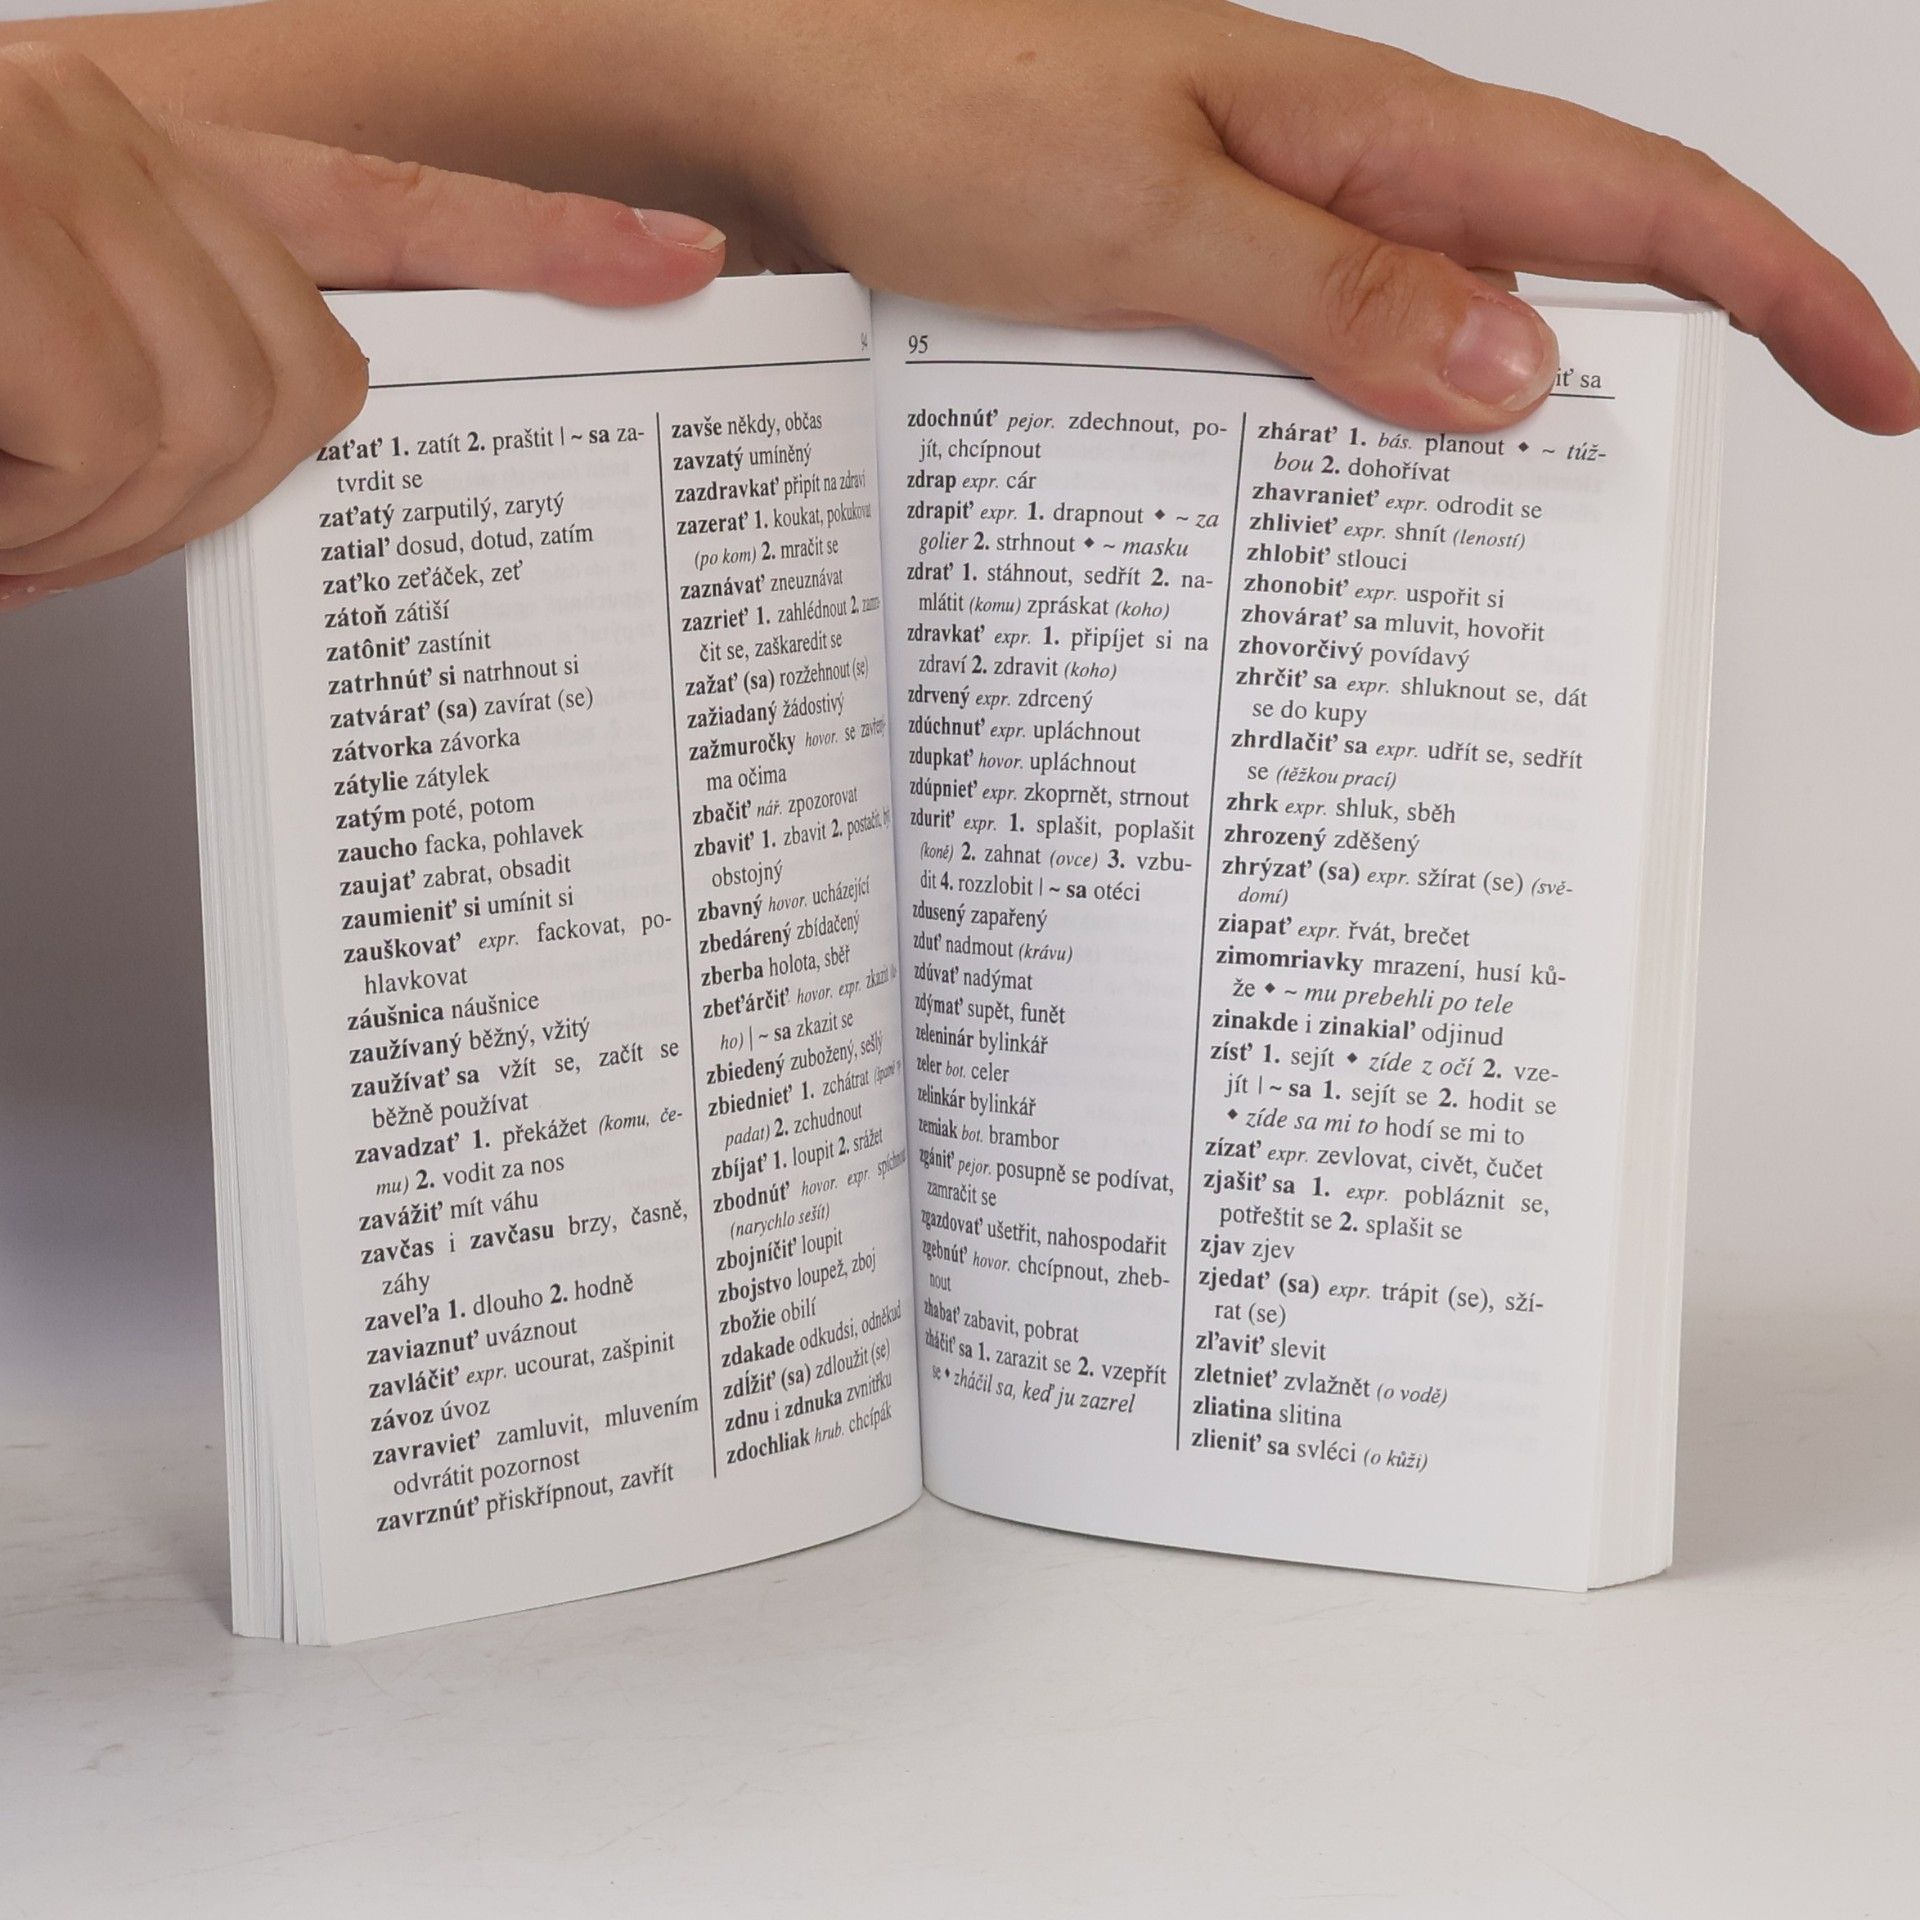 94
zaťať 1. zatít 2. praštit | ~ sa za-
tvrdit se
zaťatý zarputilý, zarytý
zatiaľ dosud, dotud, zatím
zaťko zeťáček, zeť
zátoň zátiší
zatôniť zastínit
zatrhnúť si natrhnout si
zatvárať (sa) zavírat (se)
zátvorka závorka
zátylie zátylek
zatým poté, potom
zaucho facka, pohlavek
zaujať zabrat, obsadit
zaumieniť si umínit si
zauškovať expr. fackovat, po-
hlavkovat
záušnica náušnice
zaužívaný běžný, vžitý
zaužívať sa vžít se, začít se
běžně používat
zavadzať 1. překážet (komu, če-
mu) 2. vodit za nos
zavážiť mít váhu
zavčas i zavčasu brzy, časně,
záhy
zaveľa 1. dlouho 2. hodně
zaviaznuť uváznout
zavláčiť expr. ucourat, zašpinit
závoz úvoz
zavravieť zamluvit, mluvením
odvrátit pozornost
zavrznúť přiskřípnout, zavřít
zavše někdy, občas
zavzatý umíněný
zazdravkať připít na zdraví
zazerať 1. koukat, pokukovat
(po kom) 2. mračit se
zaznávať zneuznávat
zazrieť 1. zahlédnout 2.
čit se, zaškaredit se
zažať (sa) rozžehnout (se)
zažiadaný žádostivý
zažmuročky hovor. se zavřený-
ma očima
zbačiť nář. zpozorovat
zbaviť 1. zbavit 2. postačit,
obstojný
zbavný hovor. ucházející
zbedárený zbídačený
zberba holota, sběř
zbeťárčiť hovor. expr. zkazit
ho) | ~ sa zkazit se
zbiedený zubožený, sešlý
zbiednieť 1. zchátrat (špatně
padat) 2. zchudnout
zbíjať 1. loupit 2. srážet
zbodnúť hovor. expr. spíchnout
(narychlo sešít)
zbojníčiť loupit
zbojstvo loupež, zboj
zbožie obilí
zdakade odkudsi, odněkud
zdĺžiť (sa) zdloužit (se)
zdnu i zdnuka zvnitřku
zdochliak hrub. chcípák
95
iť sa
zdochnúť pejor. zdechnout, po-
jít, chcípnout
zdrap expr. cár
zdrapiť expr. 1. drapnout ◆ ~ za
golier 2. strhnout ◆ ~ masku
zdrať 1. stáhnout, sedřít 2. na-
mlátit (komu) zpráskat (koho)
zdravkať expr. 1. připíjet si na
zdraví 2. zdravit (koho)
zdrvený expr. zdrcený
zdúchnuť expr. upláchnout
zdupkať hovor. upláchnout
zdúpnieť expr. zkoprnět, strnout
zduriť expr. 1. splašit, poplašit
(koně) 2. zahnat (ovce) 3. vzbu-
dit 4. rozzlobit | ~ sa otéci
zdusený zapařený
zduť nadmout (krávu)
zdúvať nadýmat
zdýmať supět, funět
zeleninár bylinkář
zeler bot. celer
zelinkár bylinkář
zemiak bot. brambor
zgániť pejor. posupně se podívat,
zamračit se
zgazdovať ušetřit, nahospodařit
zgebnúť hovor. chcípnout, zheb-
nout
zhabať zabavit, pobrat
zháčiť sa 1. zarazit se 2. vzepřít
se ◆ zháčil sa, keď ju zazrel
zhárať 1. bás. planout ◆ ~ túž-
bou 2. dohořívat
zhavranieť expr. odrodit se
zhlivieť expr. shnít (leností)
zhlobiť stlouci
zhonobiť expr. uspořit si
zhovárať sa mluvit, hovořit
zhovorčivý povídavý
zhrčiť sa expr. shluknout se, dát
se do kupy
zhrdlačiť sa expr. udřít se, sedřít
se (těžkou prací)
zhrk expr. shluk, sběh
zhrozený zděšený
zhrýzať (sa) expr. sžírat (se) (svě-
domí)
ziapať expr. řvát, brečet
zimomriavky mrazení, husí ků-
že ◆ ~ mu prebehli po tele
zinakde i zinakiaľ odjinud
zísť 1. sejít ◆ zíde z očí 2. vze-
jít | ~ sa 1. sejít se 2. hodit se
◆ zíde sa mi to hodí se mi to
zízať expr. zevlovat, civět, čučet
zjašiť sa 1. expr. pobláznit se,
potřeštit se 2. splašit se
zjav zjev
zjedať (sa) expr. trápit (se), sží-
rat (se)
zľaviť slevit
zletnieť zvlažnět (o vodě)
zliatina slitina
zlieniť sa svléci (o kůži)